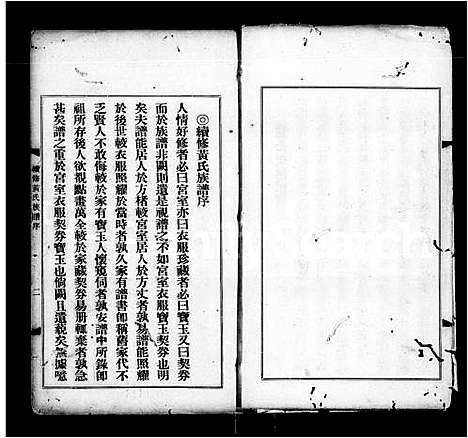 ◎續修黃氏族譜序
人情好修者必曰宮室亦曰衣服珍藏者必曰寶玉又曰契券
而於族譜非闕則遺是視譜之不如宮室衣服寶玉契券也明
矣夫譜能居人於方楮較宮室居人於方丈者孰易譜能照耀
於後世較衣服照耀於當時者孰久家有譜書卽稱舊家代不
乏賢人不敢侮較於家有寶玉人懷窺伺者孰安譜中所錄卽
祖所存後人欲視點畫萬全較於家藏契券易册輒棄者孰急
甚矣譜之重於宮室衣服契券寶玉也倘闕且遺藐矣無據噫
續修黃氏族譜序
二